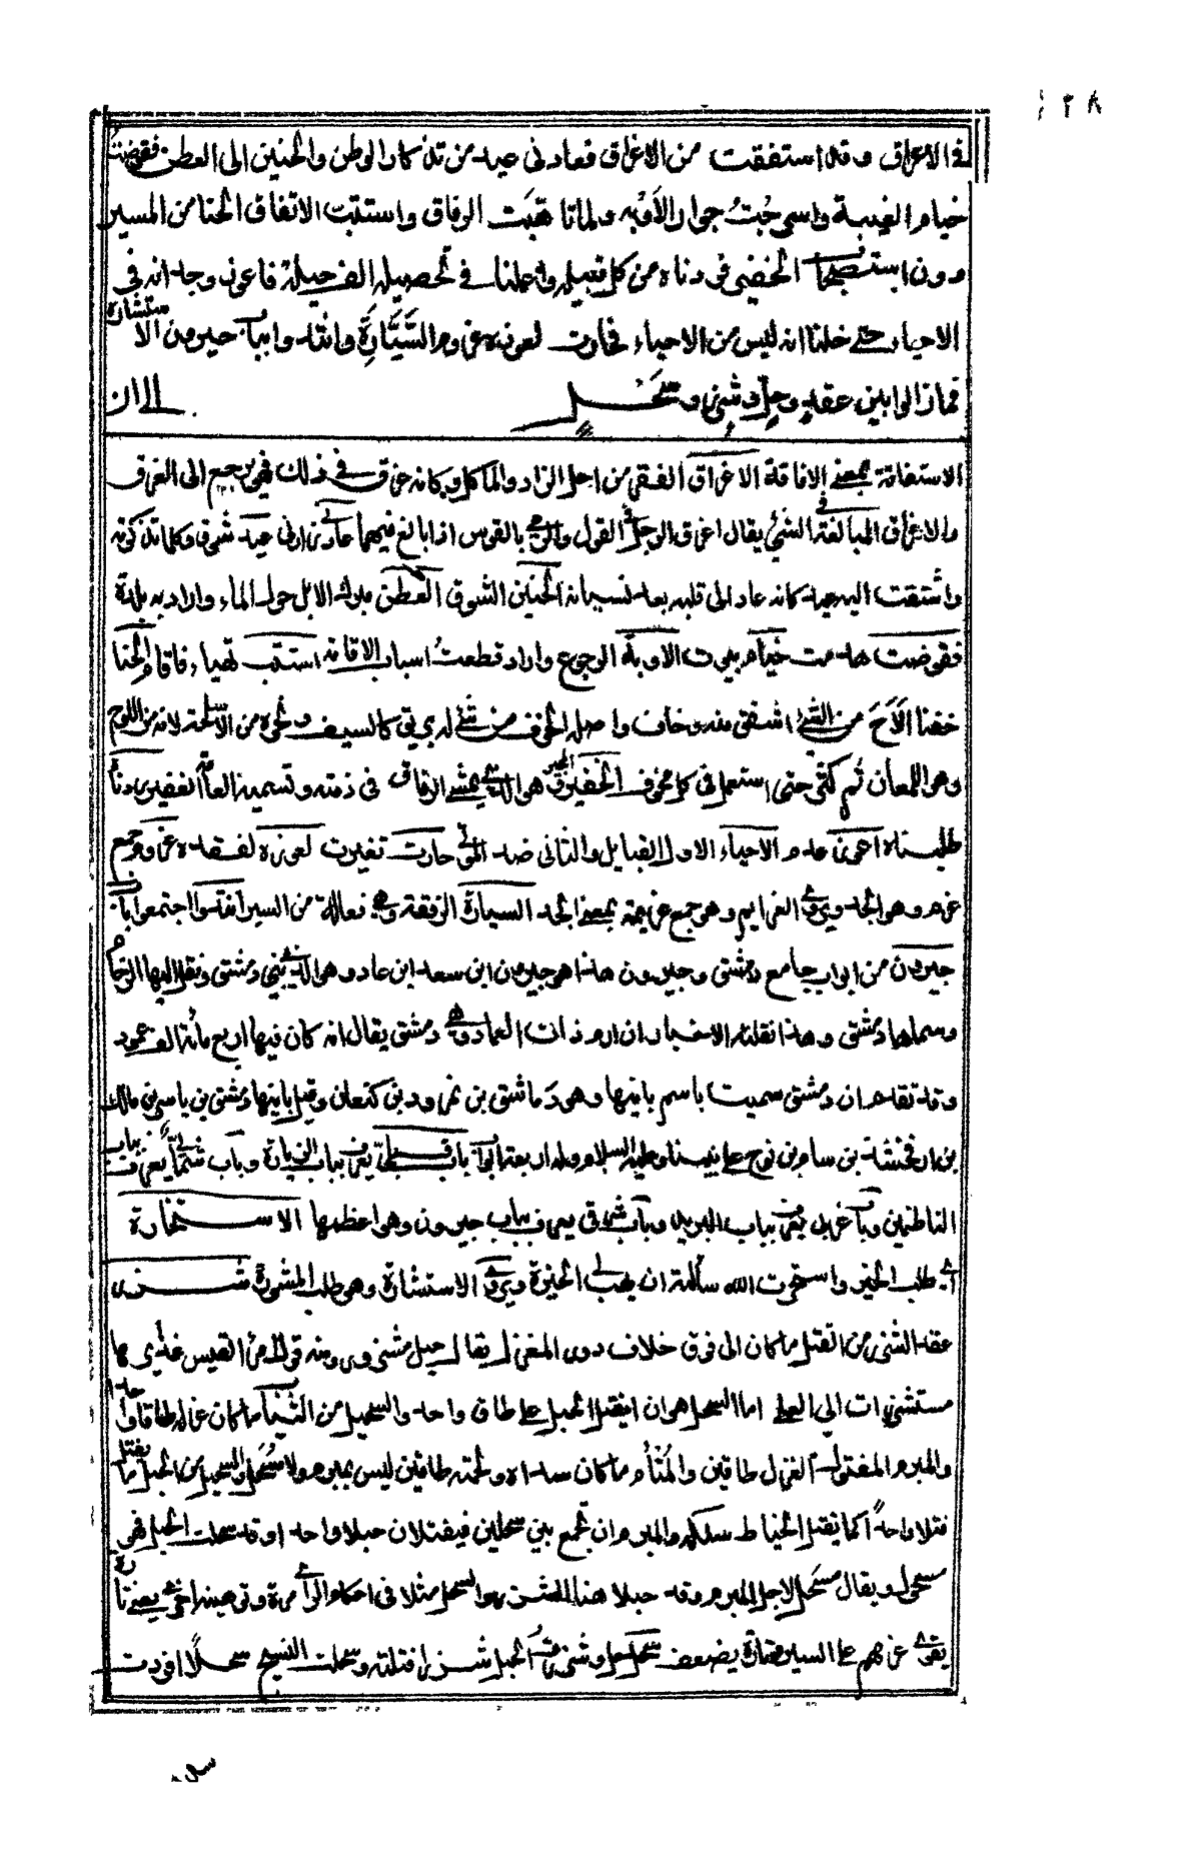 ٢٨
في الاعراق وقد استفقت من الاغراق فعادني عيد من تذكار الوطن والحنين الى العطن فقوضت
خيام الغيبة واسرجت جواد الأوبه ولما تاهبت الرفاق واستتب الاتفاق الحنا من المسير
دون استصحاب الخفير فردناه من كل قبيله واعملنا في تحصيله الف حيلة فاعوز وجدانه في
الاحياء حتى خلنا انه ليس من الاحياء فحارت لعوزه عزوم السيارة وانتدوا بباب جيرون للاستشارة
فما زالوا بين عقد وحل وشزر وسحل الى ان
الاستفاقة بمعنى الافاقة الاغراق الفقر من اجل الزاد والماكل وكانه غرق في ذلك فهو يرجع الى الغرق
والاغراق المبالغة في الشئ يقال اغرق الرجل في القول والرمي بالقوس اذا بالغ فيهما عادني اي عيد شوق وكلما تذكرته
واشتقت اليه عيد كانه عاد الى قلبه بعد نسيانه الحنين الشوق العطن مبرك الابل حول الماء واراد به بلدة
فقوضت هدمت خيام بيوت الاوبة الرجوع واراد قطعت اسباب الاقامة استتب تهياء الحنا
خفنا الاح من الشئ اشفق منه وخاف واصله الخوف من شئ له بريق كالسيف ونحوه من الاسلحة لانه من اللوح
وهو اللمعان ثم كثر حتى استعمل في كل مخوف الخفير المجير هو الذي يمشي الرفاق في ذمته وتسميه العامة الغفير ردناه
طلبناه اعوز عدم الاحياء الاول القبايل والثاني ضد الموتى حارت تغيرت لعوزه لفقده عزوم جمع
عزم وهو الجد ويروى العزايم وهو جمع عزيمة بمعنى الجد السيارة الرفقة وهي فعالة من السير انتدوا اجتمعوا باب
جيرون من ابواب جامع دمشق وجيرون هذا هو جيرون ابن سعد ابن عاد وهو الذي بنى دمشق ونقل اليها الرخام
وسماها دمشق وهذا نقلته الاخبار ان ارم ذات العماد هي دمشق يقال انه كان فيها اربع مائة الف عمود
وقد تقدم ان دمشق سميت باسم بانيها وهو دماشق بن نمرود بن كنعان وقيل بانيها دمشق بن ياسر بن مالك
بن ارفخشد بن سام بن نوح على نبينا وعليه السلام وله اربعة ابواب باب قبلي يعرف بباب الزيادة وباب شمالي يعرف بباب
الناطفين وباب غربي يعرف بباب البريد وباب شرقي يعرف بباب جيرون وهو اعظمها الاستخارة
اي طلب الخير واستخرت الله سألته ان يهب لي الخيرة ويروى الاستشارة وهو طلب المشورة شزر
عقد الشزر من الفتل ما كان الى فوق خلاف دور المغزل يقال حبل مشزور ومنه قول امرئ القيس غدايرها
مستشزرات الى العلى اما السحل هو ان يفتل الحبل على طاق واحد والسحيل من الثياب ما كان غزله طاقا واحدا
والمبرم المفتول الغزل طاقين والمتأم ما كان سداه ولحمته طاقين ليس بمبرم ولا مسحل والسحيل من الحبل ما يفتل
فتلا واحدا كما يفتل الخياط سلكه والمبرم ان تجمع بين سحلين فيفتلان حبلا واحدا وقد سحلت الحبل فهو
مسحول ويقال مسحل لاجل المبرم وقد جعلا هنا الشزر والسحل مثلا في احكام الراي مرة وتوهينه اخرى يعني تارة
يقوى عزمهم على السير وتارة يضعف سحل حل وشزر الحبل شزرا فتلته وسحلت النسيج سحلا افردت
سداه